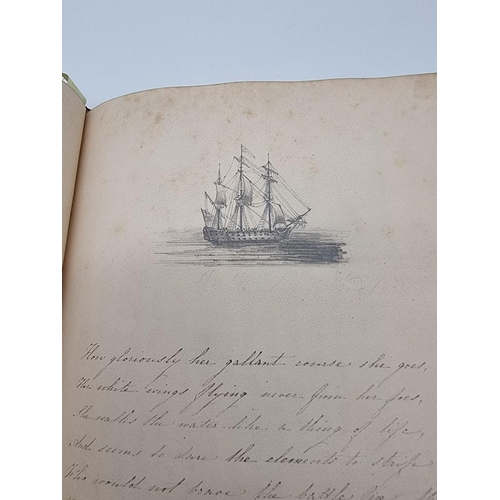 How gloriously her gallant course she goes,
Her white wings flying never from her foes,
She walks the water like a thing of life,
And seems to dare the elements to strife
Who would not brave the battles fire